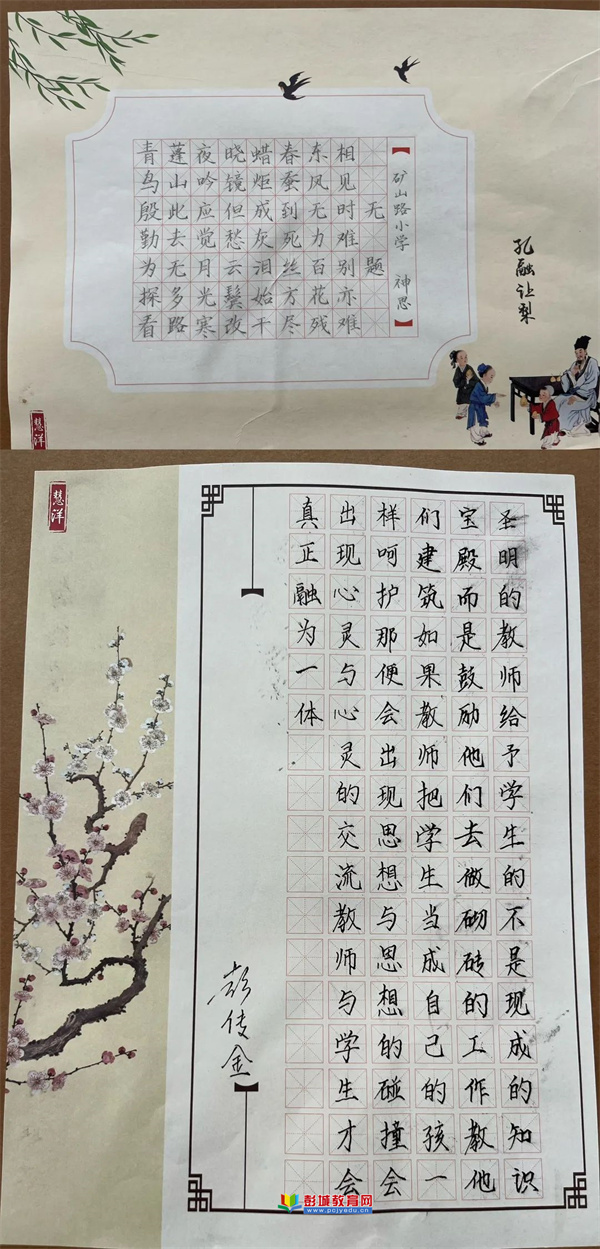 孔融让梨
【矿山路小学 神思】
无题
相见时难别亦难
东风无力百花残
春蚕到死丝方尽
蜡炬成灰泪始干
晓镜但愁云鬓改
夜吟应觉月光寒
蓬山此去无多路
青鸟殷勤为探看
慧洋
圣明的教师给予学生的不是现成的知识
宝殿而是鼓励他们去做砌砖的工作教他
们建筑如果教师把学生当成自己的孩一
样呵护那便会出现思想与思想的碰撞会
出现心灵与心灵的交流教师与学生才会
真正融为一体
慧洋
彭城教育网
www.pcjyedu.cn